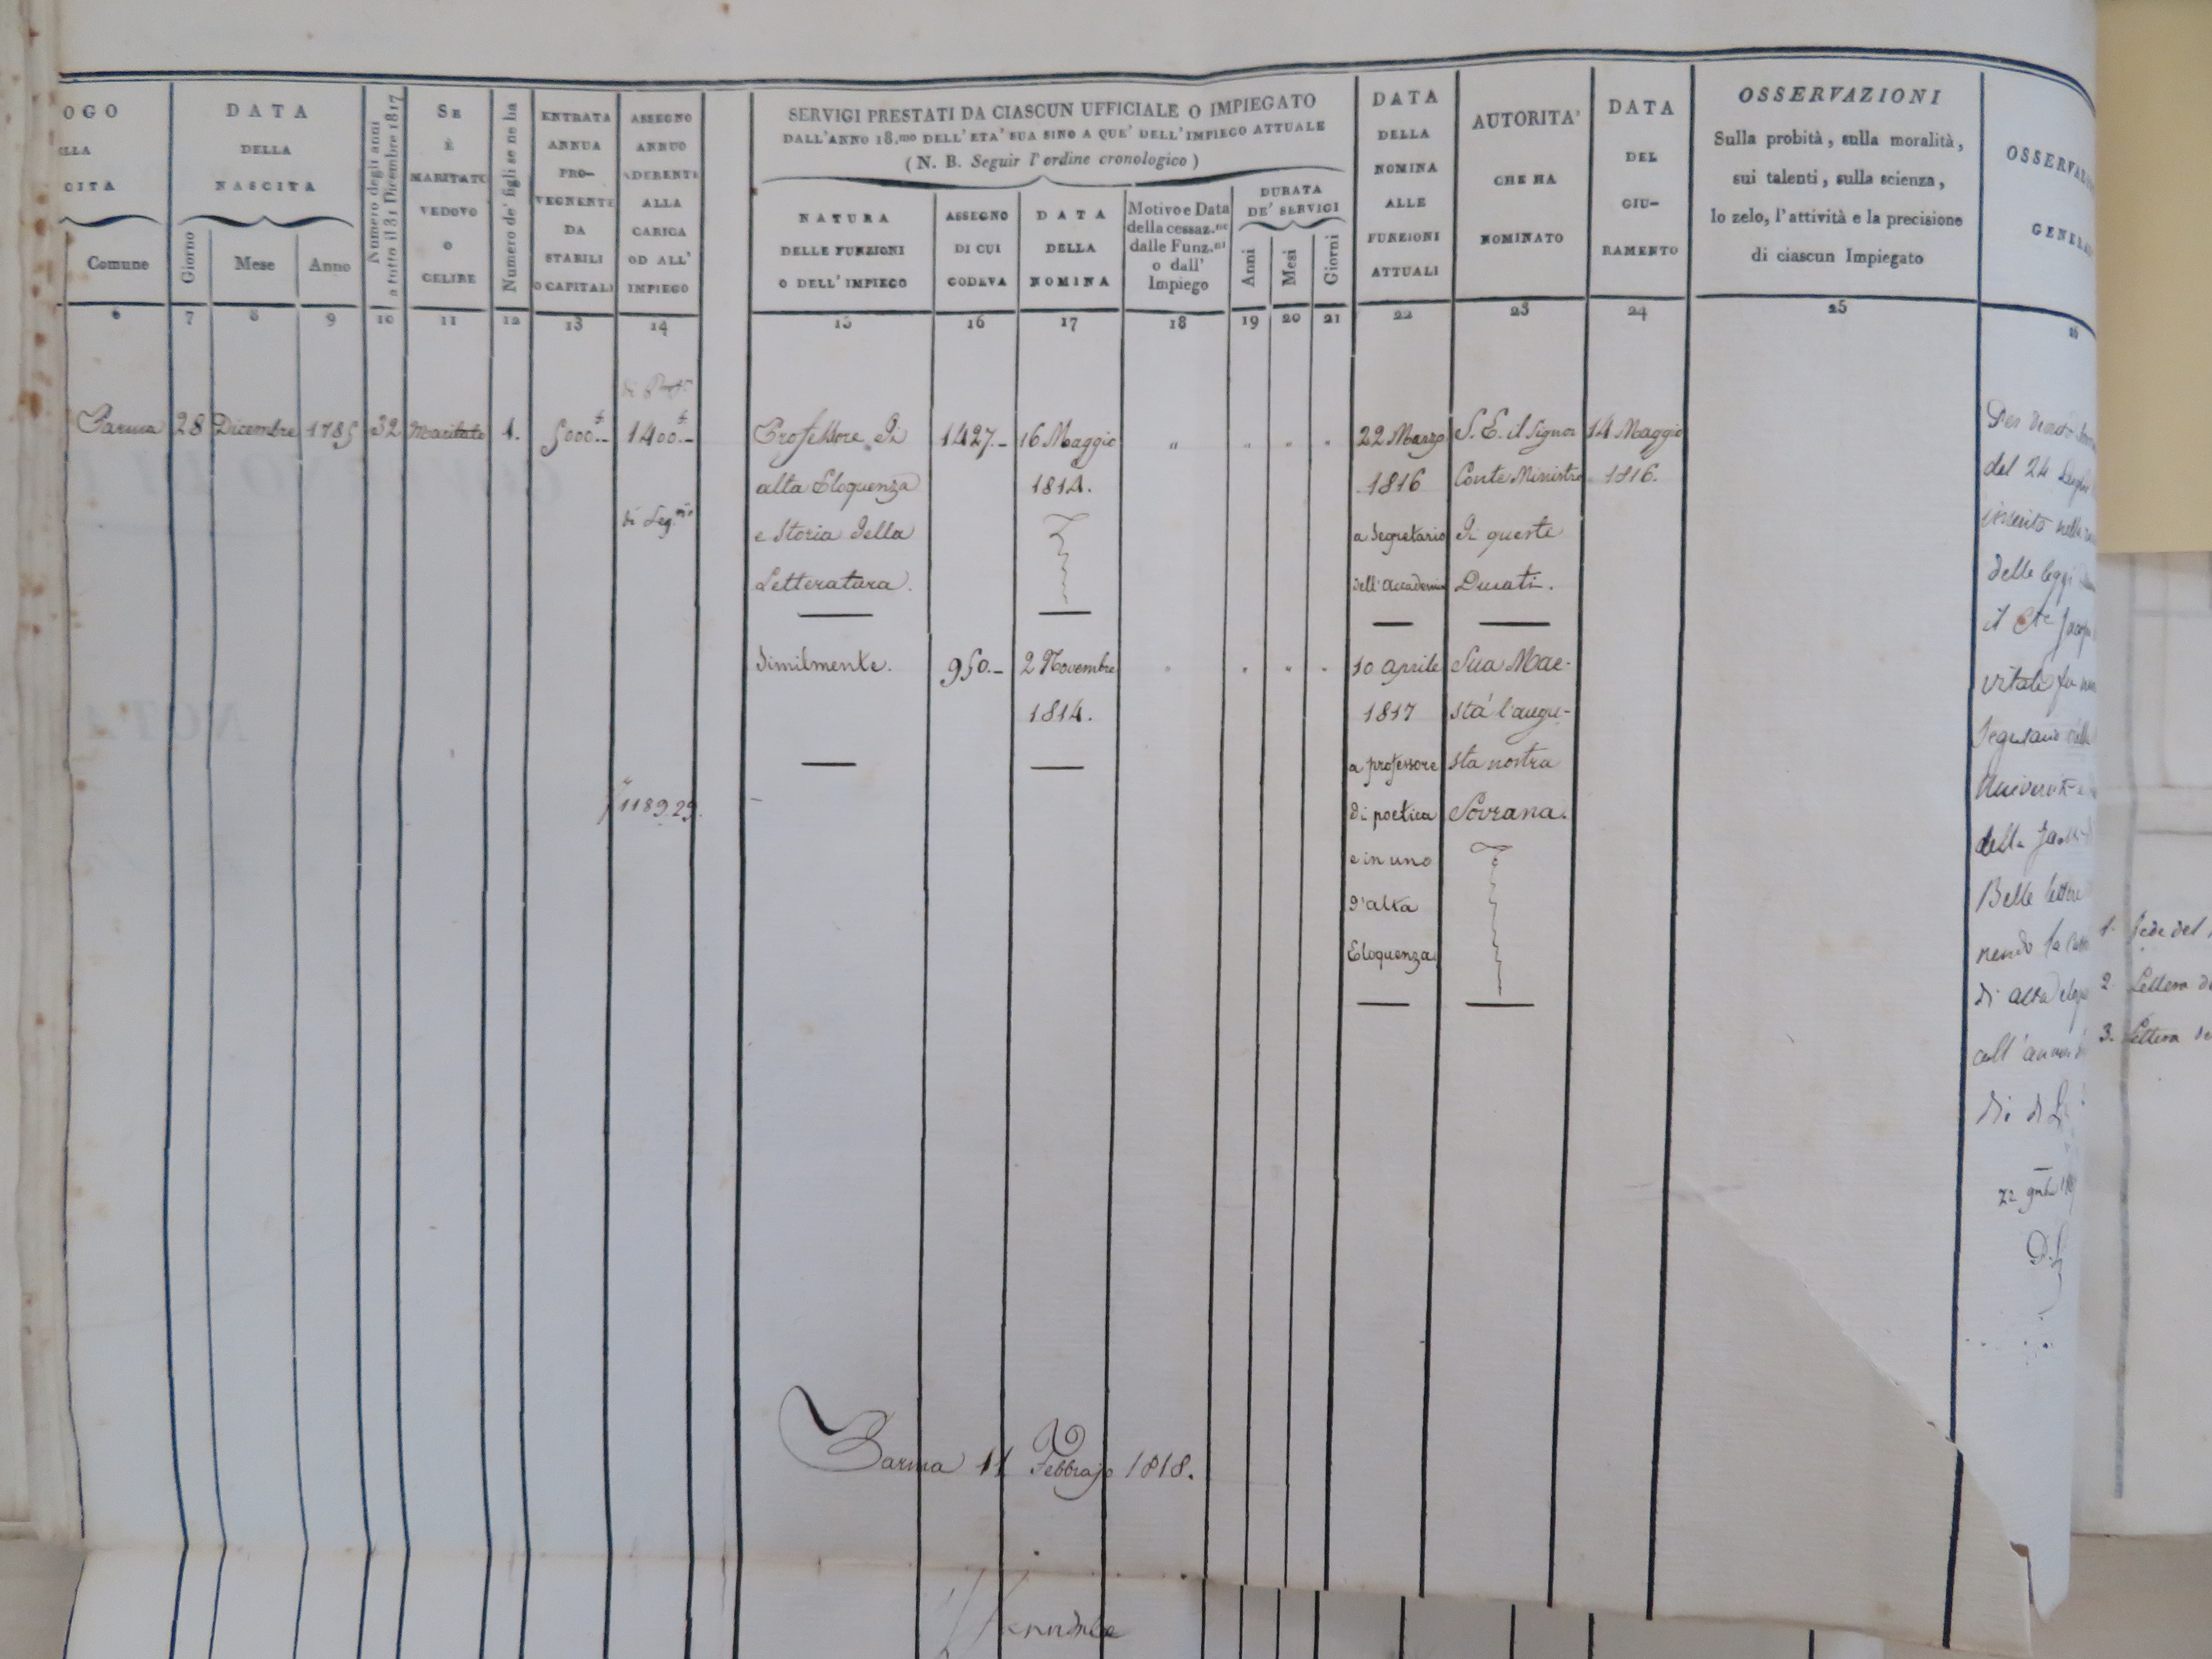 OGO
ELLA
CITA
Comune
6
DATA
DELLA
NASCITA
Giorno
Mese
Anno
7
8
9
Numero degli anni
a tutto il 31 Dicembre 1817
10
SE
È
MARITATO
VEDOVO
O
CELIBE
11
Numero de' figli se ne ha
12
ENTRATA
ANNUA
PRO-
VEGNENTE
DA
STABILI
O CAPITALI
13
ASSEGNO
ANNUO
ADERENTE
ALLA
CARICA
OD ALL'
IMPIEGO
14
SERVIGI PRESTATI DA CIASCUN UFFICIALE O IMPIEGATO
DALL'ANNO 18.mo DELL'ETA' SUA SINO A QUE' DELL'IMPIEGO ATTUALE
(N. B. Seguir l'ordine cronologico)
NATURA
DELLE FUNZIONI
O DELL'IMPIEGO
15
ASSEGNO
DI CUI
GODEVA
16
DATA
DELLA
NOMINA
17
Motivo e Data
della cessaz.ne
dalle Funz.ni
o dall'
Impiego
18
DURATA
DE' SERVIGI
Anni
Mesi
Giorni
19
20
21
DATA
DELLA
NOMINA
ALLE
FUNZIONI
ATTUALI
22
AUTORITA'
CHE HA
NOMINATO
23
DATA
DEL
GIU-
RAMENTO
24
OSSERVAZIONI
Sulla probità, sulla moralità,
sui talenti, sulla scienza,
lo zelo, l'attività e la precisione
di ciascun Impiegato
25
OSSERVAZ
GENERA
26
Parma
28
Dicembre
1785
32
Maritato
1.
5000.-
di Prof.re
1400.-
di Seg.rio
1189.29.
Professore di
alta Eloquenza
e Storia della
Letteratura.
1427.-
16 Maggio
1814.
" " " "
Similmente.
950.-
2 Novembre
1814.
" " " "
22 Marzo
1816
a Segretario
dell'Accademia
S. E. il Signor
Conte Ministro
di queste
Ducati.
14 Maggio
1816.
10 aprile
1817
a professore
di poetica
e in uno
d'alta
Eloquenza.
Sua Mae-
stà l'augu-
sta nostra
Sovrana.
del 24
inserito nella
delle leggi
il
fu
Segretario
Università
della
Belle lettere
di alta eloq
coll'annuo
di
22
1. Fede del
2. Lettera de
3. Lettera de
Parma 11 Febbrajo 1818.